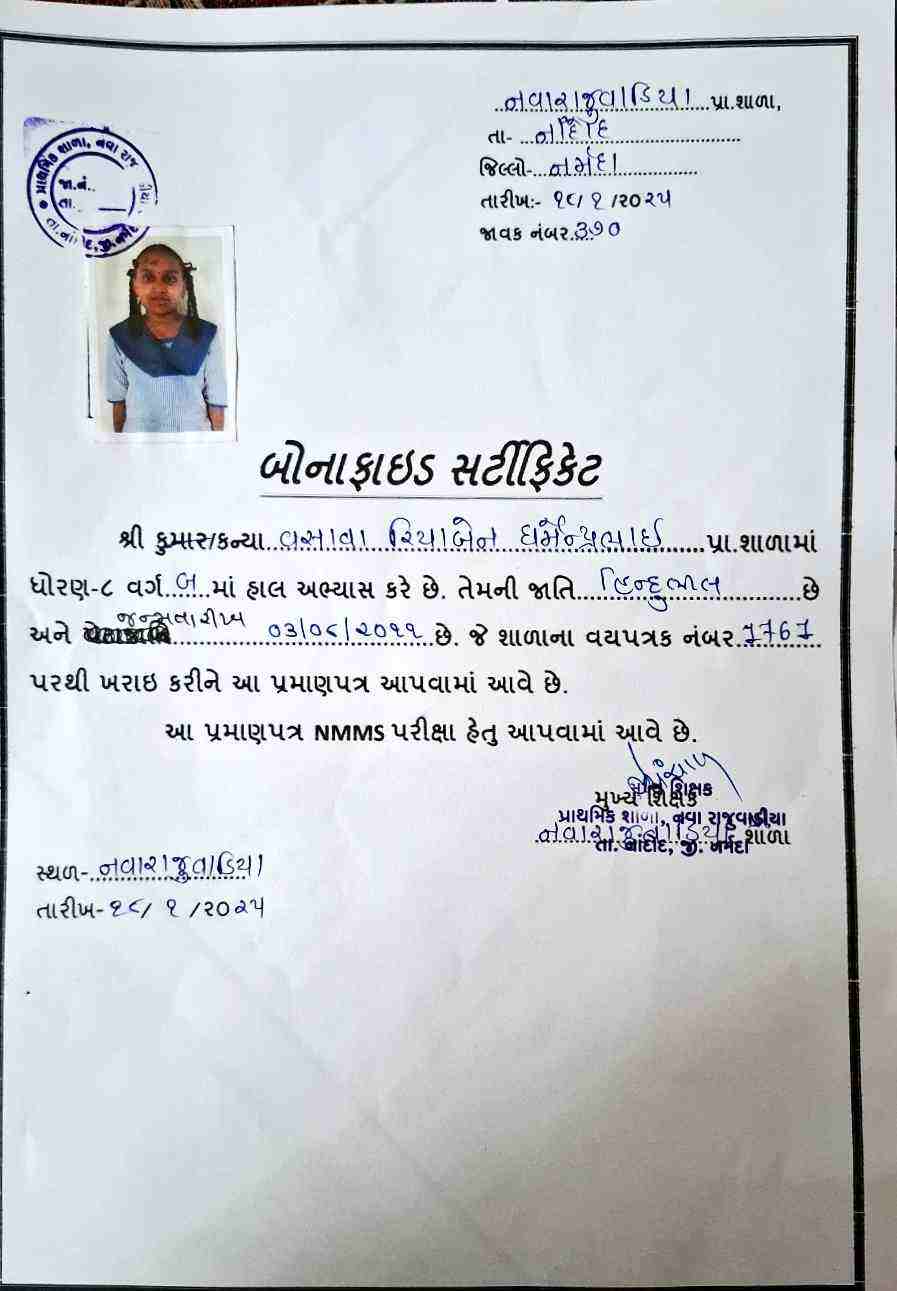 નવારાજુવાડિયા પ્રા.શાળા,
તા- નાંદોદ
જિલ્લો- નર્મદા
તારીખઃ- ૧૮/ ૧ /૨૦૨૫
જાવક નંબર.૩૭૦
પ્રાથમિક શાળા, નવા રાજ
જા.નં.
તા.
તા.નાંદોદ,જી.નર્મદા
બોનાફાઇડ સર્ટીફિકેટ
શ્રી કુમાર/કન્યા વસાવા રિયાબેન ધર્મેન્દ્રભાઈ પ્રા.શાળામાં
ધોરણ-૮ વર્ગ બ માં હાલ અભ્યાસ કરે છે. તેમની જાતિ હિન્દુભીલ છે
અને જન્મતારીખ ૦૩/૦૮/૨૦૧૧ છે. જે શાળાના વયપત્રક નંબર 1761
પરથી ખરાઇ કરીને આ પ્રમાણપત્ર આપવામાં આવે છે.
આ પ્રમાણપત્ર NMMS પરીક્ષા હેતુ આપવામાં આવે છે.
મુખ્ય શિક્ષક
શિક્ષક
પ્રાથમિક શાળા, નવા રાજુવાડીયા
નવારાજુવાડિયા શાળા
તા. નાંદોદ, જી. નર્મદા
સ્થળ- નવારાજુવાડિયા
તારીખ- ૧૮/ ૧ /૨૦૨૫